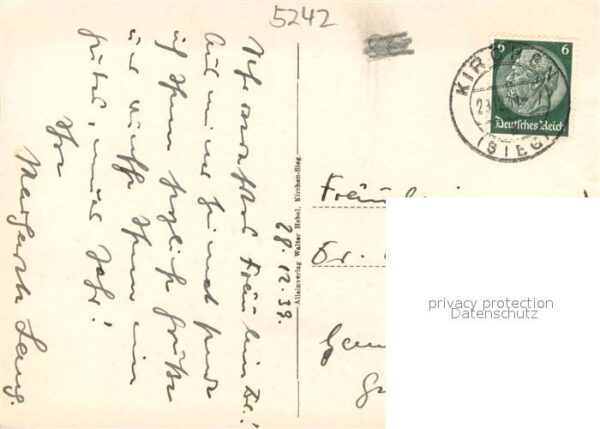 5242
Sehr verehrtes Fräulein Dr.!
Aus meiner Heimat sende
ich Ihnen herzliche Grüße
und wünsche Ihnen ein
gutes, neues Jahr!
Ihre
Margarete Lang.
28.12.39.
Alleinverlag Walter Hebel, Kirchen-Sieg.
6 6
Deutsches Reich
KIRCHEN
(SIEG)
Fräulein
Dr.
privacy protection
Datenschutz